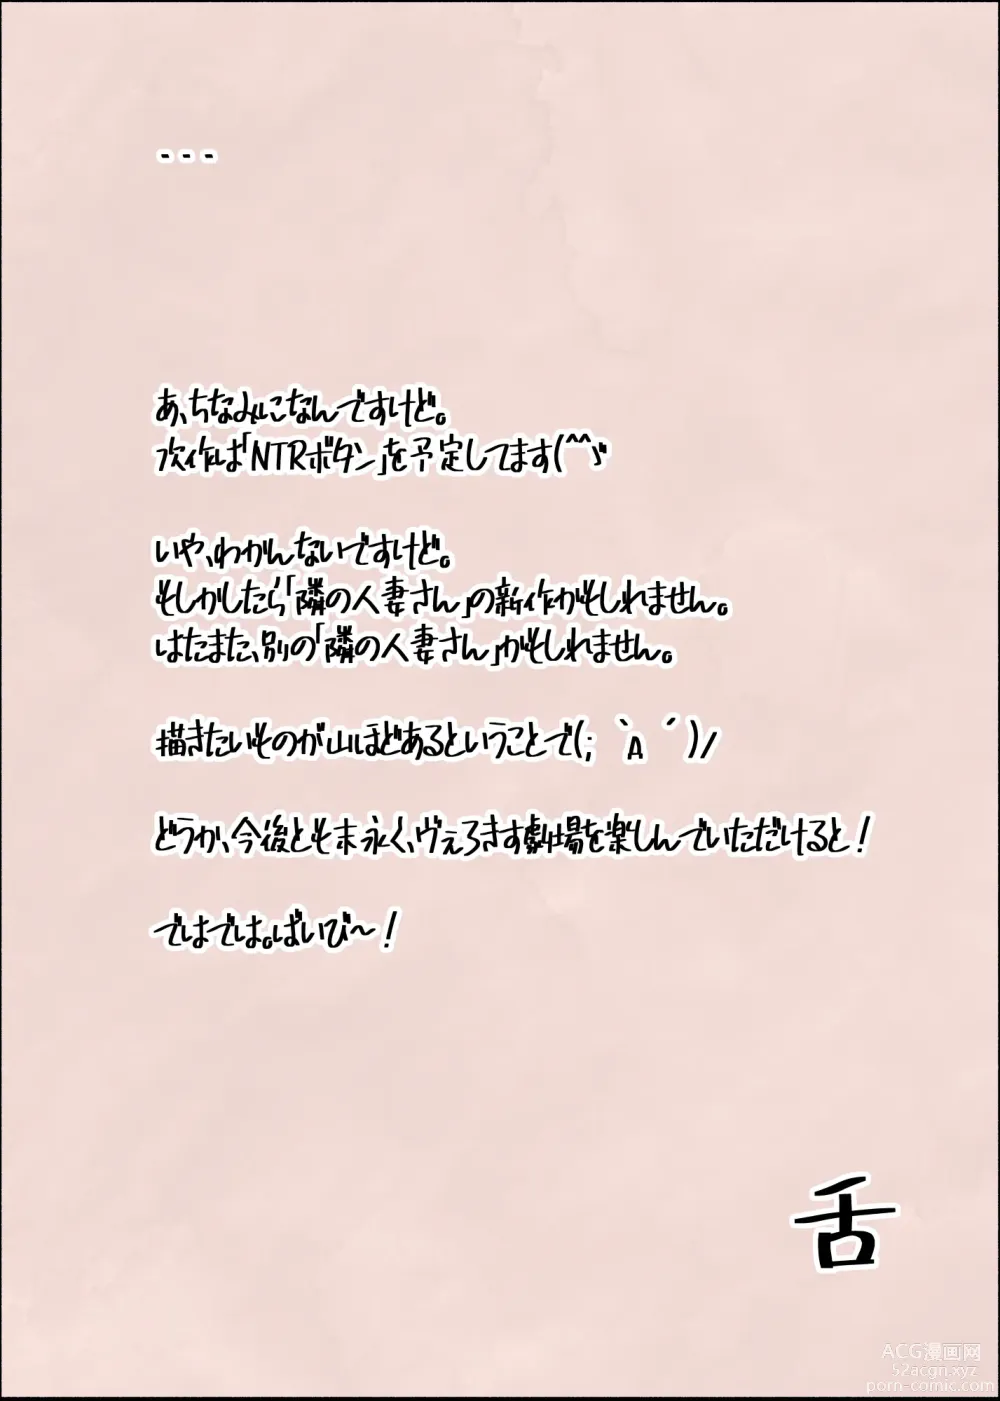 ---
あ、ちなみになんですけど。
次作は「NTRボタン」を予定してます(^^ゞ
いや、わかんないですけど。
もしかしたら「隣の人妻さん」の新作かもしれません。
はたまた、別の「隣の人妻さん」かもしれません。
描きたいものが山ほどあるということで(;｀A´)/
どうか、今後とも末永く、ヴぇろきす劇場を楽しんでいただけると!
ではでは。ばいび〜!
舌
ACG漫画网
52acgn.xyz
porn-comic.com